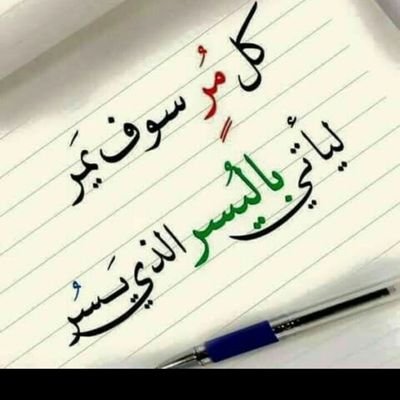 كل مُرٍ سوف يمَر
ليأتي باليُسر الذي يَسُر